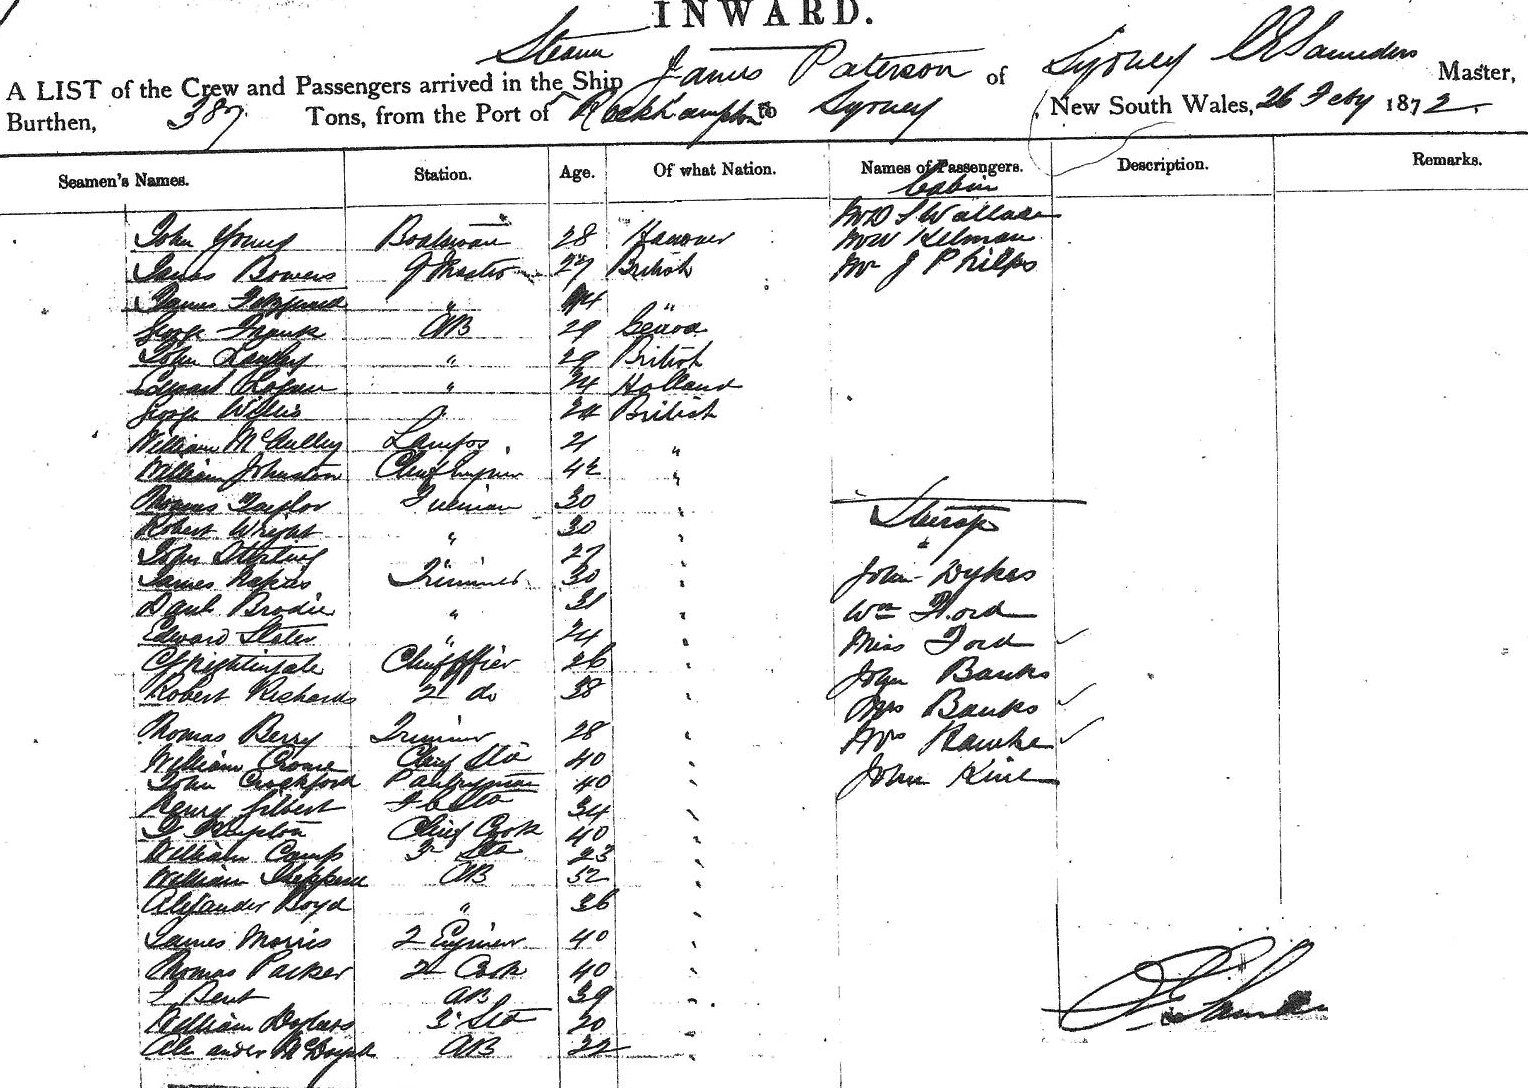 INWARD.
Steam
A LIST of the Crew and Passengers arrived in the Ship James Paterson of Sydney Saunders Master,
Burthen, 387 Tons, from the Port of Rockhampton to Sydney, New South Wales, 26 Feby 1872.
Seamen's Names. Station. Age. Of what Nation. Names of Passengers. Description. Remarks.
Cabin
Wallace
John Young Boatswain 28 Hanover Kelman
James Bowers 27 British Mr J Philps
James "
George Frank AB 29 Genoa
John Langley " 29 British
Edward Logan " 24 Holland
George Willis 24 British
William McCulley Lamps 21 "
William Johnston Chief Engineer 42 "
Thomas Taylor Fireman 30 "
Robert Wright " 30 " Steerage
John Sterling " 27 "
James Trimmer 30 " John Dykes
Brodie " 31 " Wm Ford
Edward Slater " 24 " Miss Ford
Nightingale Chief Officer 26 " John Banks
Robert Richards 2 do 38 " Mrs Banks
Thomas Berry Trimmer 28 " Mrs Hawke
William Crome Chief Std 40 "
John Crockford Pantryman 40 " John
Henry Gilbert 34 "
Chief Cook 40 "
William Camp 3 Std 23 "
William AB 52 "
Alexander Boyd " 36 "
James Morris 2 Engineer 40 "
Thomas Parker 2 Cook 40 "
Bent AB 39 "
William 3 Std 20 "
AB 22 "